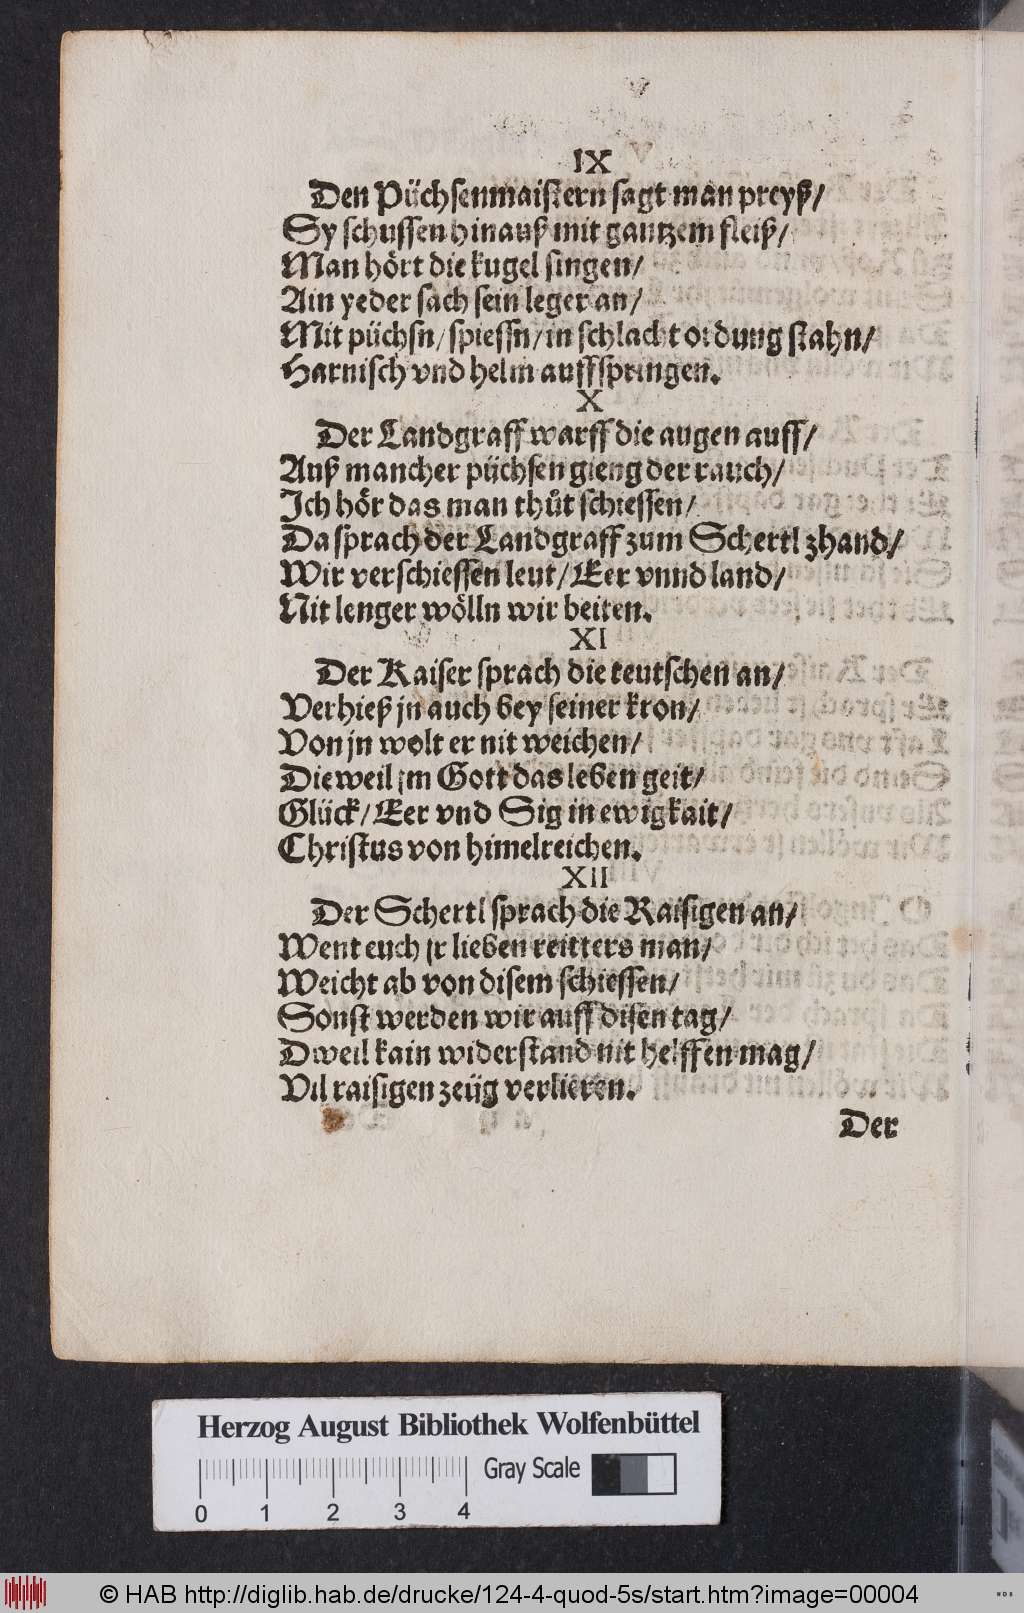 IX
Den Püchsenmaistern sagt man preyß/
Sy schussen hinauß mit gantzem fleiß/
Man hört die kugel singen/
Ain yeder sach sein leger an/
Mit püchsn/ spiessn/ in schlacht ordung stahn/
Harnisch vnd helm auffspringen.
X
Der Landgraff warff die augen auff/
Auß mancher püchsen gieng der rauch/
Ich hör das man thůt schiessen/
Da sprach der Landgraff zum Schertl zhand/
Wir verschiessen leut/ Eer vnnd land/
Nit lenger wölln wir beiten.
XI
Der Kaiser sprach die teutschen an/
Verhieß jn auch bey seiner kron/
Von jn wolt er nit weichen/
Die weil im Gott das leben geit/
Glück/ Eer vnd Sig in ewigkait/
Christus von himelreichen.
XII
Der Schertl sprach die Raisigen an/
Went euch jr lieben reitters man/
Weicht ab von disem schiessen/
Sonst werden wir auff disen tag/
Dweil kain widerstand nit helffen mag/
Vil raisigen zeüg verlieren.
Der
Herzog August Bibliothek Wolfenbüttel
Gray Scale
0 1 2 3 4
© HAB http://diglib.hab.de/drucke/124-4-quod-5s/start.htm?image=00004